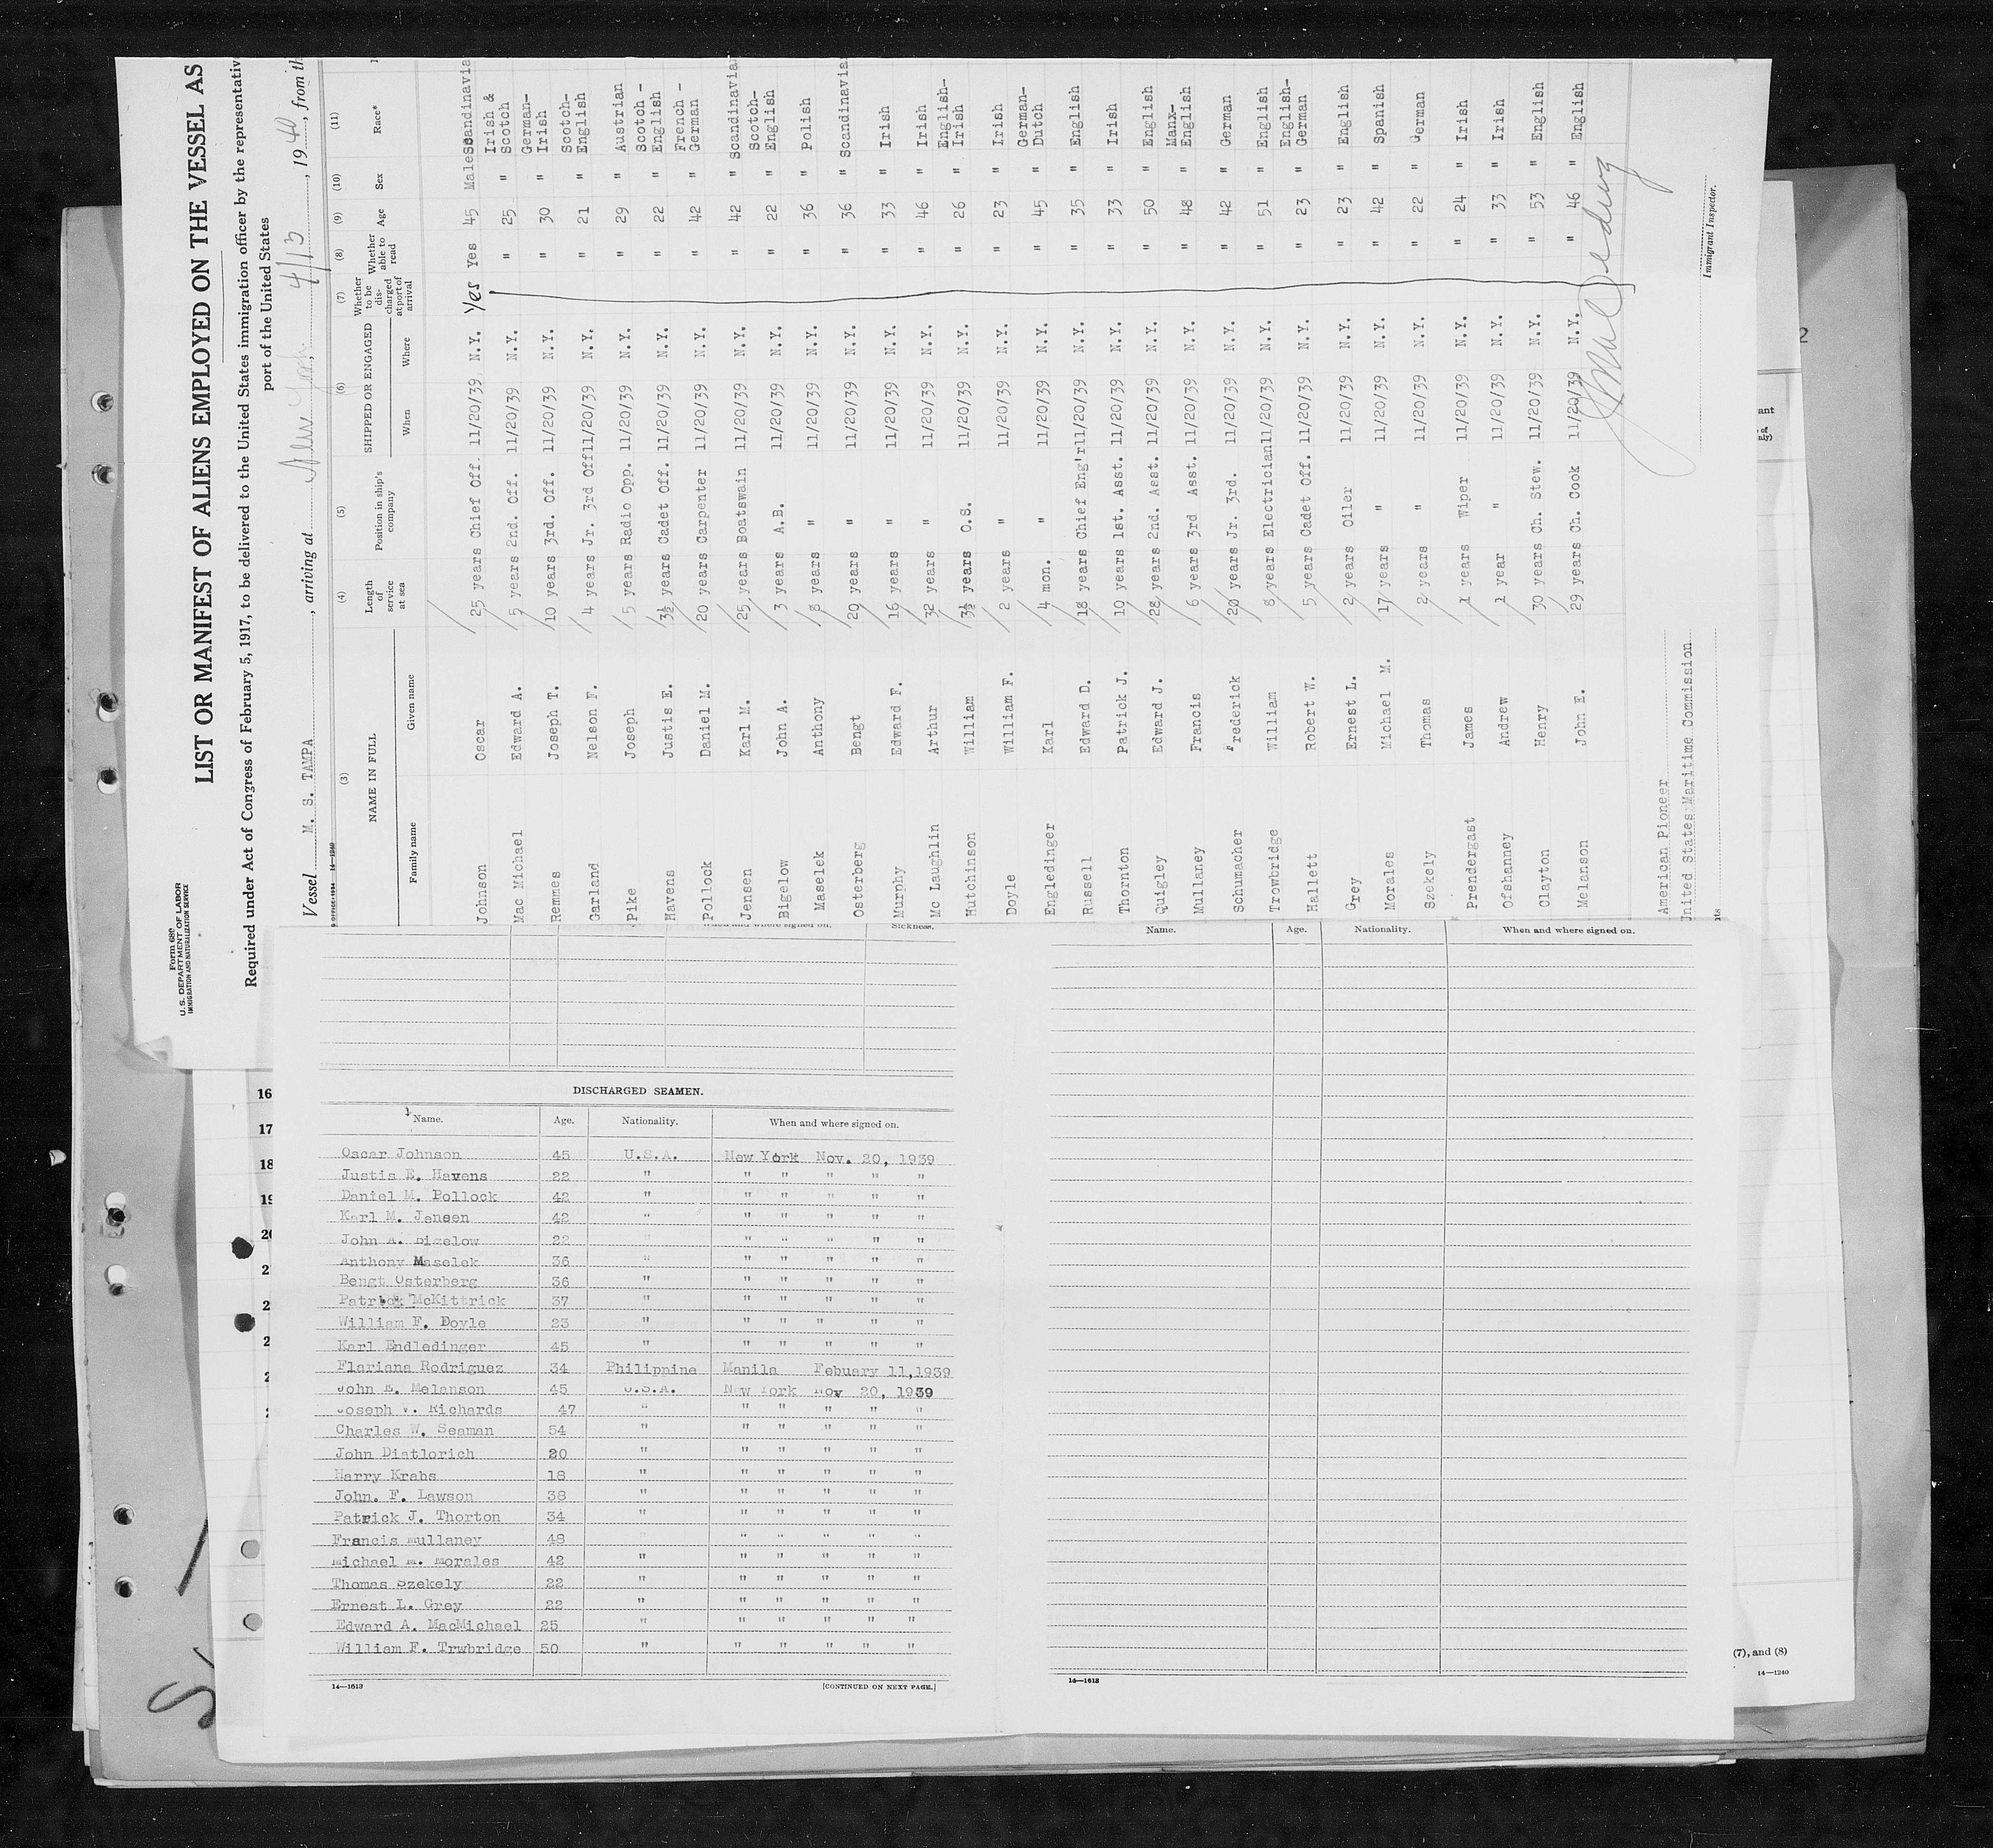 Form 680
U. S. DEPARTMENT OF LABOR
IMMIGRATION AND NATURALIZATION SERVICE
LIST OR MANIFEST OF ALIENS EMPLOYED ON THE VESSEL AS
Required under Act of Congress of February 5, 1917, to be delivered to the United States immigration officer by the representativ
port of the United States
Vessel M. S. TAMPA, arriving at New York 4/13, 1940, from th
(3) (4) (5) (6) (7) (8) (9) (10) (11)
NAME IN FULL Length of service at sea Position in ship's company SHIPPED OR ENGAGED Whether to be discharged at port of arrival Whether able to read Age Sex Race*
Family name Given name When Where
Johnson Oscar 25 years Chief Off. 11/20/39 N.Y. Yes Yes 45 Male Scandinavia
Mac Michael Edward A. 5 years 2nd. Off. 11/20/39 N.Y. " 25 " Irish & Scotch
Remmes Joseph T. 10 years 3rd. Off. 11/20/39 N.Y. " 30 " German-Irish
Garland Nelson F. 4 years Jr. 3rd Off 11/20/39 N.Y. " 21 " Scotch-English
Pike Joseph 5 years Radio Opp. 11/20/39 N.Y. " 29 " Austrian
Havens Justis E. 3½ years Cadet Off. 11/20/39 N.Y. " 22 " Scotch - English
Pollock Daniel M. 20 years Carpenter 11/20/39 N.Y. " 42 " French - German
Jensen Karl M. 25 years Boatswain 11/20/39 N.Y. " 42 " Scandinavia
Bigelow John A. 3 years A.B. 11/20/39 N.Y. " 22 " Scotch-English
Maselek Anthony 8 years " 11/20/39 N.Y. " 36 " Polish
Osterberg Bengt 20 years " 11/20/39 N.Y. " 36 " Scandinavia
Murphy Edward F. 16 years " 11/20/39 N.Y. " 33 " Irish
Mc Laughlin Arthur 32 years " 11/20/39 N.Y. " 46 " Irish
Hutchinson William 3½ years O.S. 11/20/39 N.Y. " 26 " English-Irish
Doyle William F. 2 years " 11/20/39 N.Y. " 23 " Irish
Engledinger Karl 4 mon. " 11/20/39 N.Y. " 45 " German-Dutch
Russell Edward D. 18 years Chief Eng'r 11/20/39 N.Y. " 35 " English
Thornton Patrick J. 10 years 1st. Asst. 11/20/39 N.Y. " 33 " Irish
Quigley Edward J. 28 years 2nd. Asst. 11/20/39 N.Y. " 50 " English
Mullaney Francis 6 years 3rd Asst. 11/20/39 N.Y. " 48 " Manx-English
Schumacher Frederick 20 years Jr. 3rd. 11/20/39 N.Y. " 42 " German
Trowbridge William 8 years Electrician 11/20/39 N.Y. " 51 " English
Hallett Robert W. 5 years Cadet Off. 11/20/39 N.Y. " 23 " English-German
Grey Ernest L. 2 years Oiler 11/20/39 N.Y. " 23 " English
Morales Michael M. 17 years " 11/20/39 N.Y. " 42 " Spanish
Szekely Thomas 2 years " 11/20/39 N.Y. " 22 " German
Prendergast James 1 years Wiper 11/20/39 N.Y. " 24 " Irish
Ofshanney Andrew 1 year " 11/20/39 N.Y. " 33 " Irish
Clayton Henry 30 years Ch. Stew. 11/20/39 N.Y. " 53 " English
Melanson John E. 29 years Ch. Cook 11/20/39 N.Y. " 46 " English
American Pioneer
United States Maritime Commission
Immigrant Inspector.
When and where signed on. Sickness.
Name. Age. Nationality. When and where signed on.
DISCHARGED SEAMEN.
Name. Age. Nationality. When and where signed on.
Oscar Johnson 45 U.S.A. New York Nov. 20, 1939
Justis E. Havens 22 " " " " " "
Daniel M. Pollock 42 " " " " " "
Karl M. Jensen 42 " " " " " "
John A. Bigelow 22 " " " " " "
Anthony Maselek 36 " " " " " "
Bengt Osterberg 36 " " " " " "
Patrick McKittrick 37 " " " " " "
William F. Doyle 23 " " " " " "
Karl Endledinger 45 " " " " " "
Flariana Rodriguez 34 Philippine Manila Febuary 11,1939
John E. Melanson 45 U.S.A. New York Nov 20, 1939
Joseph V. Richards 47 " " " " " "
Charles W. Seaman 54 " " " " " "
John Diatlorich 20 " " " " " "
Harry Krabs 18 " " " " " "
John. F. Lawson 38 " " " " " "
Patrick J. Thorton 34 " " " " " "
Francis Mullaney 48 " " " " "
Michael M. Morales 42 " " " " " "
Thomas Szekely 22 " " " " " "
Ernest L. Grey 22 " " " " " "
Edward A. MacMichael 25 " " " " " "
William F. Trwbridge 50 " " " " " "
14—1613 [CONTINUED ON NEXT PAGE.]
14—1613
16
17
18
19
(7), and (8)
14—1240